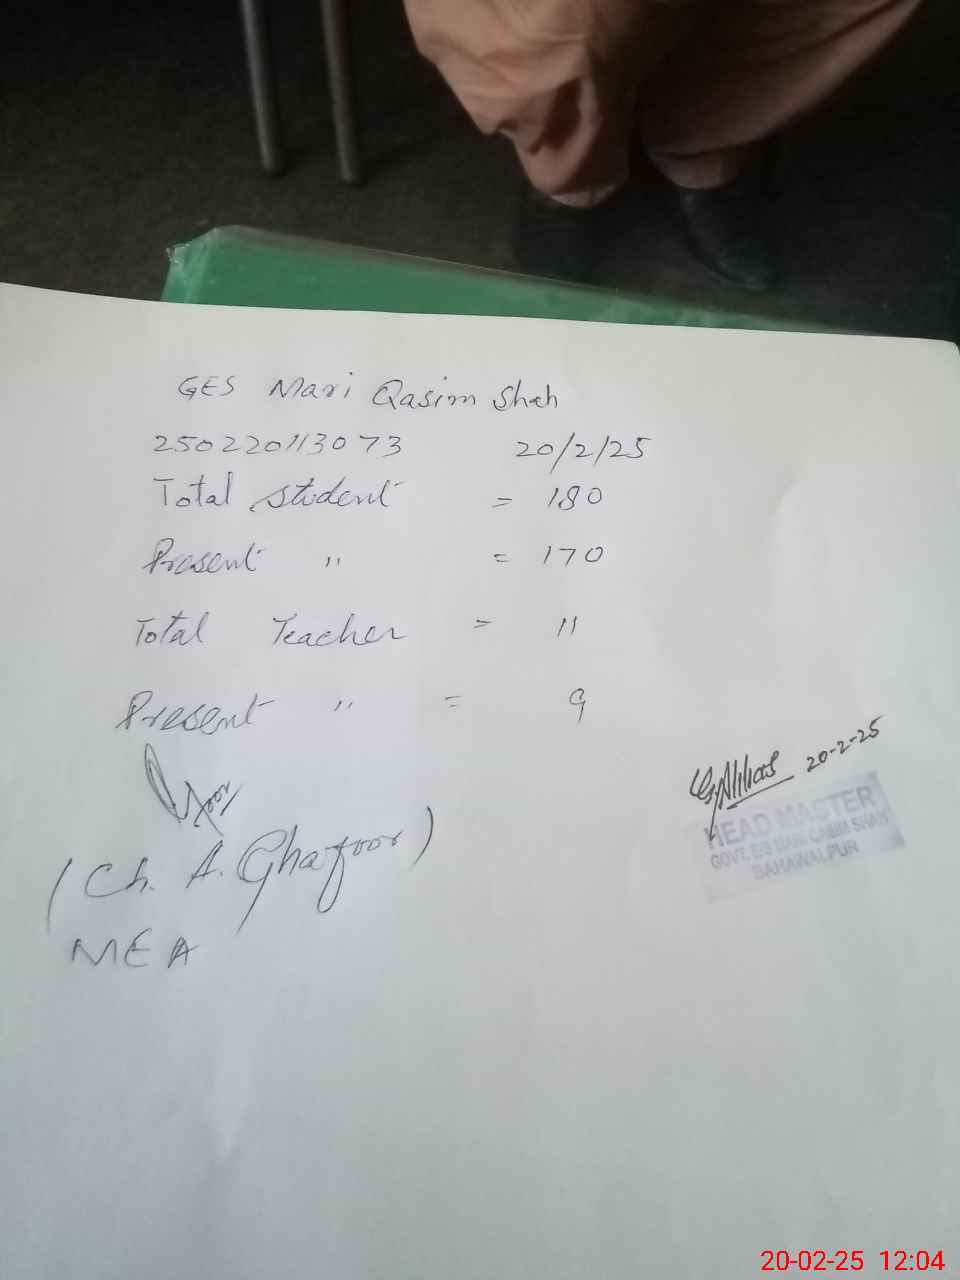 GES Mari Qasim Shah
250220113073 20/2/25
Total Student = 180
Present " = 170
Total Teacher = 11
Present " = 9
(Ch. A. Ghafoor)
MEA
20-2-25
HEAD MASTER
GOVT. E/S MARI QASIM SHAH
BAHAWALPUR
20-02-25 12:04